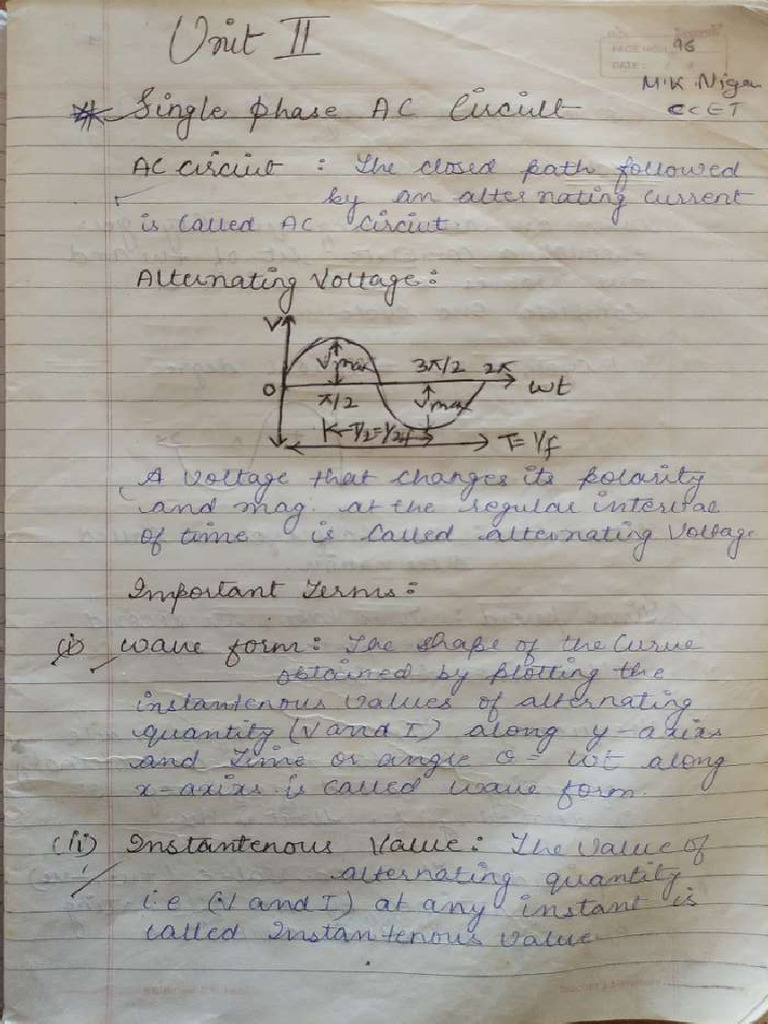 Unit II
PAGE NO. 96
DATE:
M.K. Nigam
CCET
Single phase AC Circiult
AC circiut : The closed path followed
by an alternating current
is called AC Circiut
Alternating Voltage:
V
Vmax
3π/2 2π
0
ωt
π/2
Vmax
T/2=1/2f
T=1/f
A voltage that changes its polarity
and mag. at the regular interval
of time is called alternating Voltage
Important Terms:
(i) wave form: The shape of the curve
obtained by plotting the
instantenous values of alternating
quantity (V and I) along y-axixs
and time or angle θ= wt along
x-axixs is called wave form.
(ii) Instantenous Value: The value of
alternating quantity
i.e (V and I) at any instant is
called Instantenous value